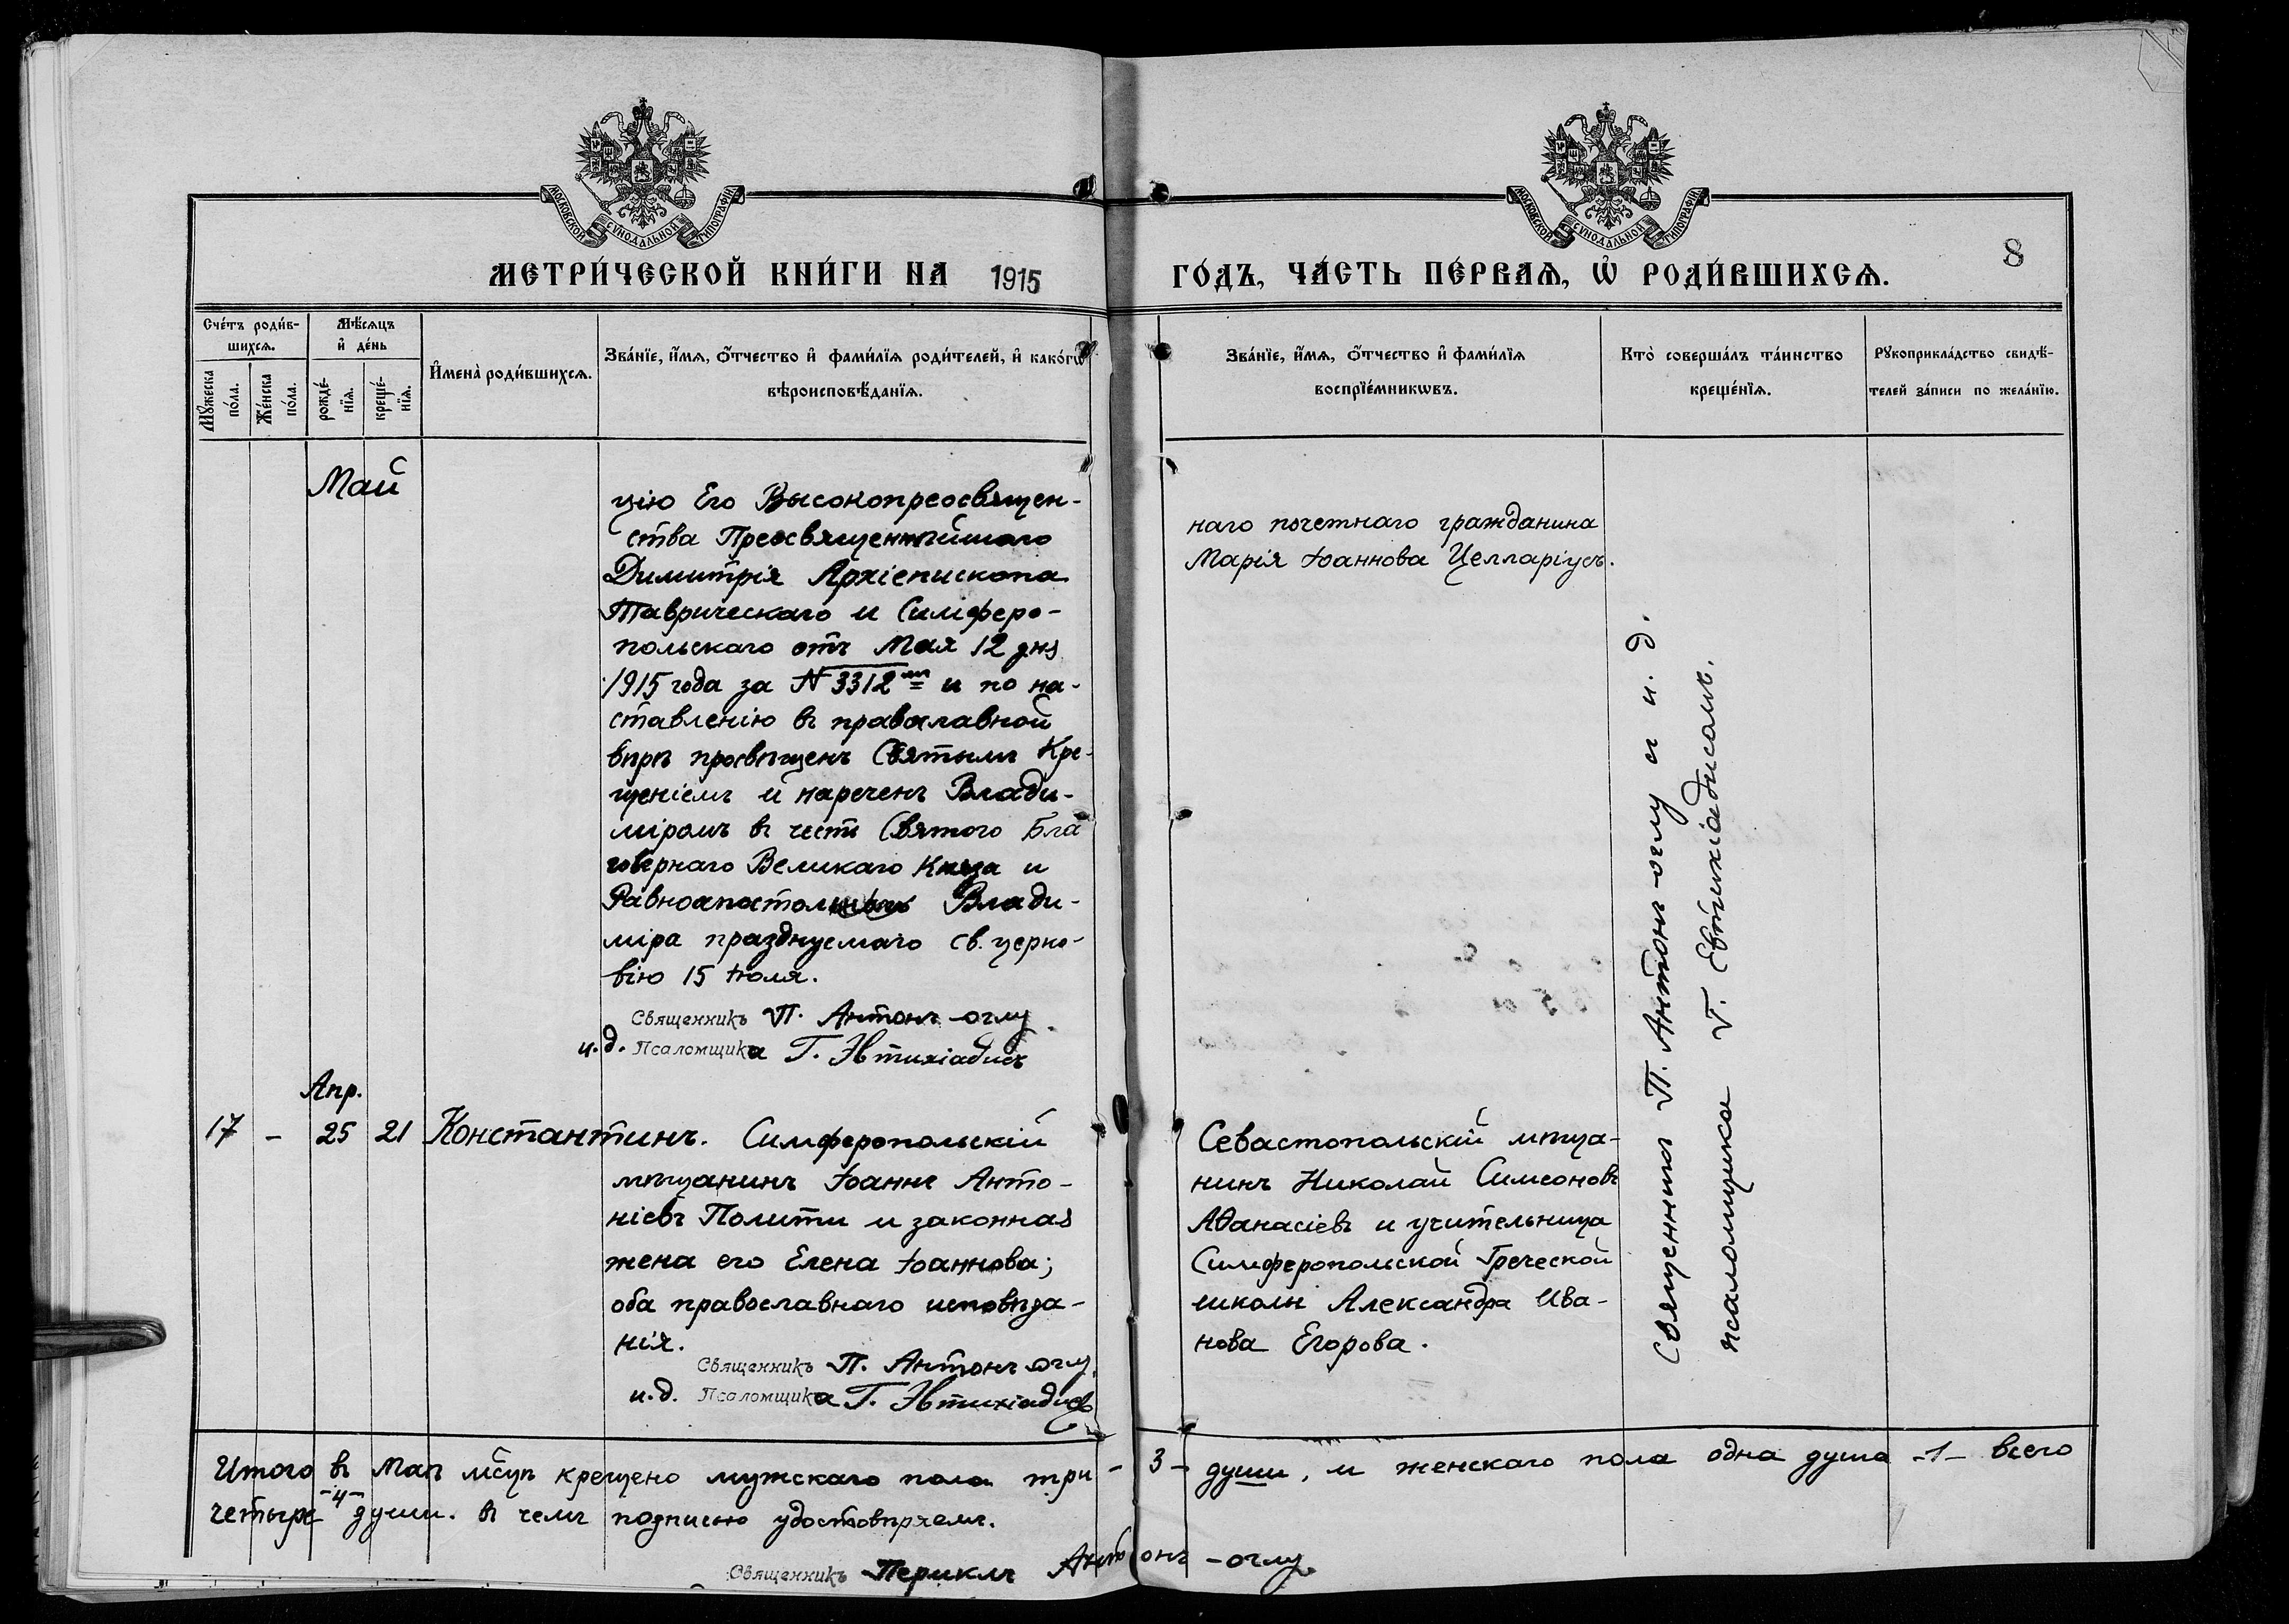 МОСКОВСКОЙ СѴНОДАЛЬНОЙ ТИПОГРАФІИ
МОСКОВСКОЙ СѴНОДАЛЬНОЙ ТИПОГРАФІИ
8
МЕТРИ́ЧЕСКОЙ КНИ́ГИ НА 1915
ГО́ДЪ, ЧА́СТЬ ПЕ́РВАѦ, Ѡ҆ РОДИ́ВШИХСѦ.
Сче́тъ роди́в-
шихсѧ.
Мꙋ́жеска
по́ла.
Же́нска
по́ла.
Мѣ́сѧцъ
и҆ де́нь
рожде́-
нїѧ.
креще́-
нїѧ.
И҆мена̀ роди́вшихсѧ.
Зва́нїе, и҆́мѧ, ѻ҆́тчество и҆ фами́лїѧ роди́телей, и҆ како́гѡ
вѣроисповѣ́данїѧ.
Зва́нїе, и҆́мѧ, ѻ҆́тчество и҆ фами́лїѧ
воспрїе́мникѡвъ.
Кто̀ соверша́лъ та́инство
креще́нїѧ.
Рꙋкоприкла́дство свидѣ́-
телей за́писи по жела́нїю.
Май
цію Его Высокопреосвящен-
ства Преосвященнѣйшаго
Димитрія Архіепископа
Таврическаго и Симферо-
польскаго отъ Мая 12 дня
1915 года за N 3312 м и по на-
ставленію въ православной
вѣрѣ просвѣщенъ Святымъ Кре-
щеніемъ и нареченъ Влади-
міромъ въ честь Святого Бла
говѣрнаго Великаго Князя и
Равноапостольнаго Влади-
міра празднуемаго св. церко-
вію 15 Іюля.
Священникъ П. Антонъ-оглу
и.д. Псаломщика Г. Эвтихіадисъ
наго почетнаго гражданина
Марія Іоаннова Целларіусъ.
Апр.
17 - 25 21 Константинъ. Симферопольскій
мѣщанинъ Іоаннъ Анто-
ніевъ Полити и законная
жена его Елена Іоаннова;
оба православнаго исповѣда-
нія.
Священникъ П. Антонъ-оглу.
и.д. Псаломщика Г. Эвтихіадисъ
Севастопольскій мѣща-
нинъ Николай Симеоновъ
Аѳанасіевъ и учительница
Симферопольской Греческой
школы Александра Ива-
нова Егорова.
Священникъ П. Антонъ-оглу и и. д.
псаломщика Г. Евтихіадисомъ.
Итого въ Маѣ мѣсяцѣ крещено мужскаго пола три - 3 - души, и женскаго пола одна душа -1- всего
четыре -4- души. въ чемъ подписью удостовѣряемъ.
Священникъ Периклъ Антонъ-оглу